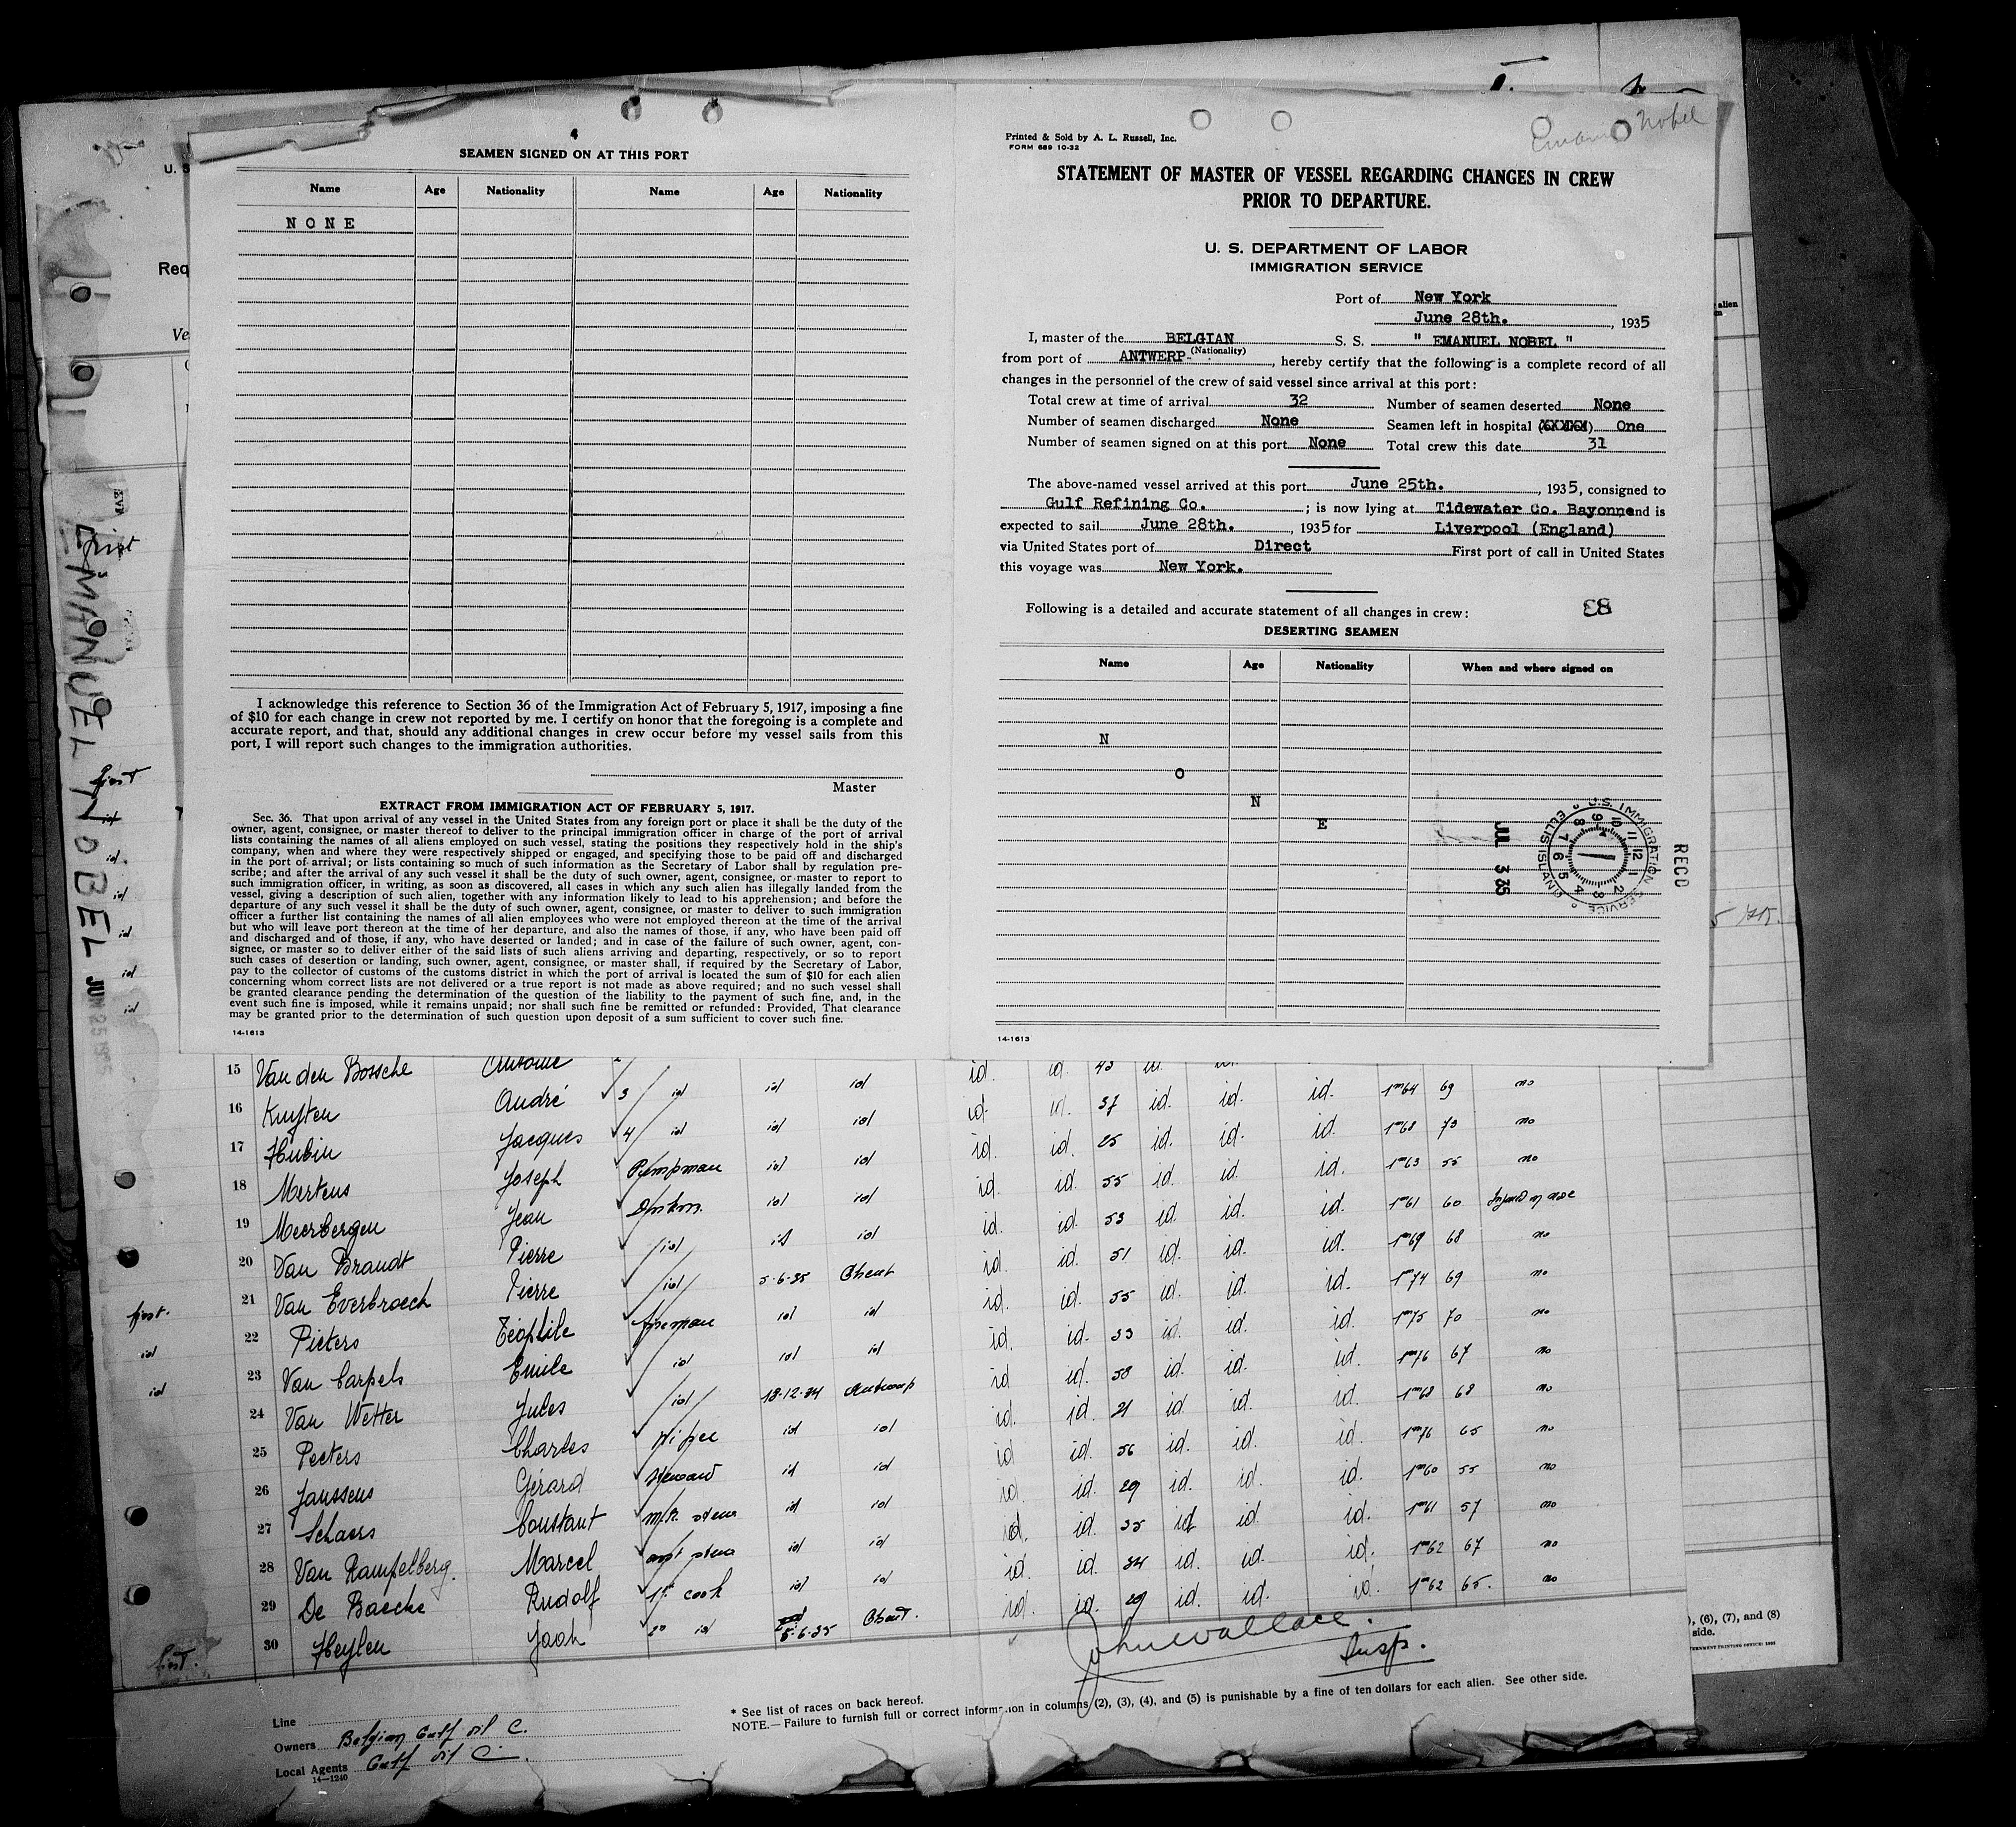 4
SEAMEN SIGNED ON AT THIS PORT
Name Age Nationality Name Age Nationality
NONE
I acknowledge this reference to Section 36 of the Immigration Act of February 5, 1917, imposing a fine
of $10 for each change in crew not reported by me. I certify on honor that the foregoing is a complete and
accurate report, and that, should any additional changes in crew occur before my vessel sails from this
port, I will report such changes to the immigration authorities.
Master
EXTRACT FROM IMMIGRATION ACT OF FEBRUARY 5, 1917.
Sec. 36. That upon arrival of any vessel in the United States from any foreign port or place it shall be the duty of the
owner, agent, consignee, or master thereof to deliver to the principal immigration officer in charge of the port of arrival
lists containing the names of all aliens employed on such vessel, stating the positions they respectively hold in the ship's
company, when and where they were respectively shipped or engaged, and specifying those to be paid off and discharged
in the port of arrival; or lists containing so much of such information as the Secretary of Labor shall by regulation pre-
scribe; and after the arrival of any such vessel it shall be the duty of such owner, agent, consignee, or master to report to
such immigration officer, in writing, as soon as discovered, all cases in which any such alien has illegally landed from the
vessel, giving a description of such alien, together with any information likely to lead to his apprehension; and before the
departure of any such vessel it shall be the duty of such owner, agent, consignee, or master to deliver to such immigration
officer a further list containing the names of all alien employees who were not employed thereon at the time of the arrival
but who will leave port thereon at the time of her departure, and also the names of those, if any, who have been paid off
and discharged and of those, if any, who have deserted or landed; and in case of the failure of such owner, agent, con-
signee, or master so to deliver either of the said lists of such aliens arriving and departing, respectively, or so to report
such cases of desertion or landing, such owner, agent, consignee, or master shall, if required by the Secretary of Labor,
pay to the collector of customs of the customs district in which the port of arrival is located the sum of $10 for each alien
concerning whom correct lists are not delivered or a true report is not made as above required; and no such vessel shall
be granted clearance pending the determination of the question of the liability to the payment of such fine, and, in the
event such fine is imposed, while it remains unpaid; nor shall such fine be remitted or refunded: Provided, That clearance
may be granted prior to the determination of such question upon deposit of a sum sufficient to cover such fine.
14-1613
Nobel
Printed & Sold by A. L. Russell, Inc.
FORM 689 10-32
STATEMENT OF MASTER OF VESSEL REGARDING CHANGES IN CREW
PRIOR TO DEPARTURE.
U. S. DEPARTMENT OF LABOR
IMMIGRATION SERVICE
Port of New York
June 28th. , 1935
I, master of the BELGIAN S. S. " EMANUEL NOBEL "
(Nationality)
from port of ANTWERP- , hereby certify that the following is a complete record of all
changes in the personnel of the crew of said vessel since arrival at this port:
Total crew at time of arrival 32 Number of seamen deserted None
Number of seamen discharged None Seamen left in hospital (XXXXX) One
Number of seamen signed on at this port None Total crew this date 31
The above-named vessel arrived at this port June 25th. , 1935, consigned to
Gulf Refining Co. ; is now lying at Tidewater Co. Bayonne and is
expected to sail June 28th. , 1935 for Liverpool (England)
via United States port of Direct First port of call in United States
this voyage was New York.
Following is a detailed and accurate statement of all changes in crew:
83
DESERTING SEAMEN
Name Age Nationality When and where signed on
N
O
N
E
U.S. IMMIGRATION SERVICE ELLIS ISLAND
12 1 2 3 4 5 6 7 8 9 10 11
RECD
JUL 3 35
14-1613
U. S
Req
Ve
EMANUEL NOBEL JUN 25 1935
first
first
id
id
id
id
id
15 Van den Bossche Antoine 43
16 Kuyten André 3 id id id id id. 37 id. id. id. 1m64 69 no
17 Hubin Jacques 4 id id id id. id. 25 id. id. id. 1m68 73 no
18 Mertens Joseph Pumpman id id id. id. 55 id. id. id. 1m63 55 no
19 Meerbergen Jean id id id. id. 53 id. id. id. 1m61 60
20 Van Brandt Pierre id id id id. id. 51 id. id. id. 1m69 68 no
first. 21 Van Everbroeck Pierre id 5-6-35 Ghent id. id. 55 id. id. id. 1m74 69 no
id 22 Pieters Téophile fireman id id id. id. 33 id. id. id. 1m75 70 no
id 23 Van Carpels Emile id id id id id. 58 id. id. id. 1m76 67 no
24 Van Wetter Jules id 18-12-34 Antwerp id. id. 21 id. id. id. 1m68 68 no
25 Peeters Charles id id id id. 56 id. id. id. 1m76 65 no
26 Janssens Gérard steward id id id. id. 29 id. id. id. 1m60 55 no
27 Schaers Constant id id id. id. 35 id id id. 1m61 57 no
28 Van Rampelberg. Marcel id id id. id. 34 id. id. id. 1m62 67 no
29 De Baecke Rudolf 1st cook id id id. id. 29 id. id. id. 1m62 65. no
first. 30 Heylen Jaak 2d id 5-6-35 Ghent.
John Wallace.
Insp.
Line
Owners Belgian Gulf oil C.
Local Agents Gulf oil C.
14-1240
* See list of races on back hereof.
NOTE.—Failure to furnish full or correct information in columns (2), (3), (4), and (5) is punishable by a fine of ten dollars for each alien. See other side.
alien
), (6), (7), and (8)
side.